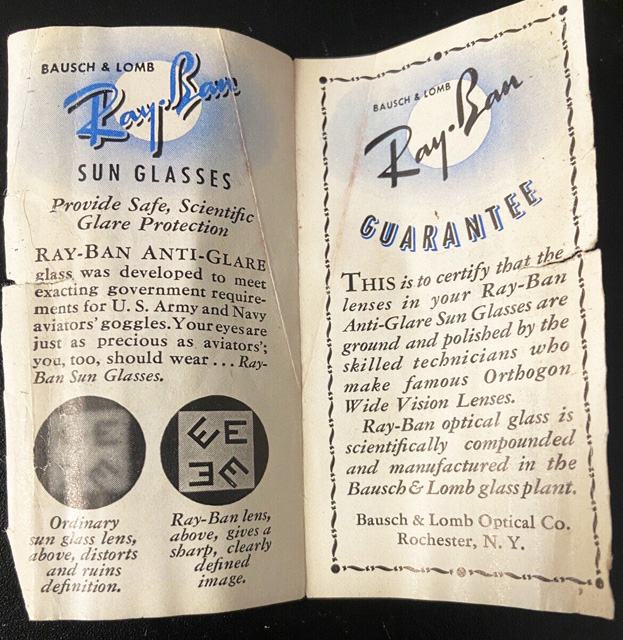 BAUSCH & LOMB
Ray-Ban
SUN GLASSES
Provide Safe, Scientific
Glare Protection
RAY-BAN ANTI-GLARE
glass was developed to meet
exacting government require-
ments for U. S. Army and Navy
aviators' goggles. Your eyes are
just as precious as aviators';
you, too, should wear ... Ray-
Ban Sun Glasses.
E E
E E
Ordinary
sun glass lens,
above, distorts
and ruins
definition.
E E
E E
Ray-Ban lens,
above, gives a
sharp, clearly
defined
image.
BAUSCH & LOMB
Ray-Ban
GUARANTEE
THIS is to certify that the
lenses in your Ray-Ban
Anti-Glare Sun Glasses are
ground and polished by the
skilled technicians who
make famous Orthogon
Wide Vision Lenses.
Ray-Ban optical glass is
scientifically compounded
and manufactured in the
Bausch & Lomb glass plant.
Bausch & Lomb Optical Co.
Rochester, N. Y.